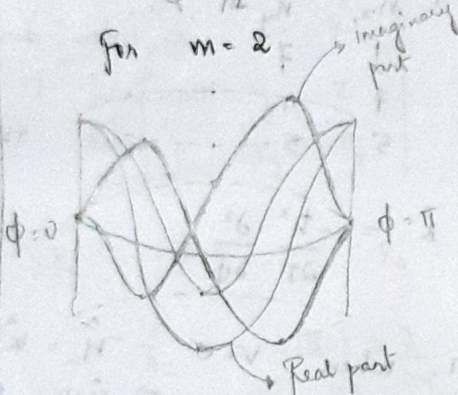 For m = 2
Imaginary
part
ϕ = 0
ϕ = π
Real part